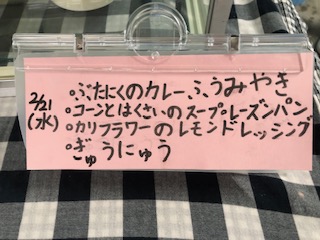 2/21
(水)
・ぶたにくのカレーふうみやき
・コーンとはくさいのスープ・レーズンパン
・カリフラワーのレモンドレッシング
・ぎゅうにゅう